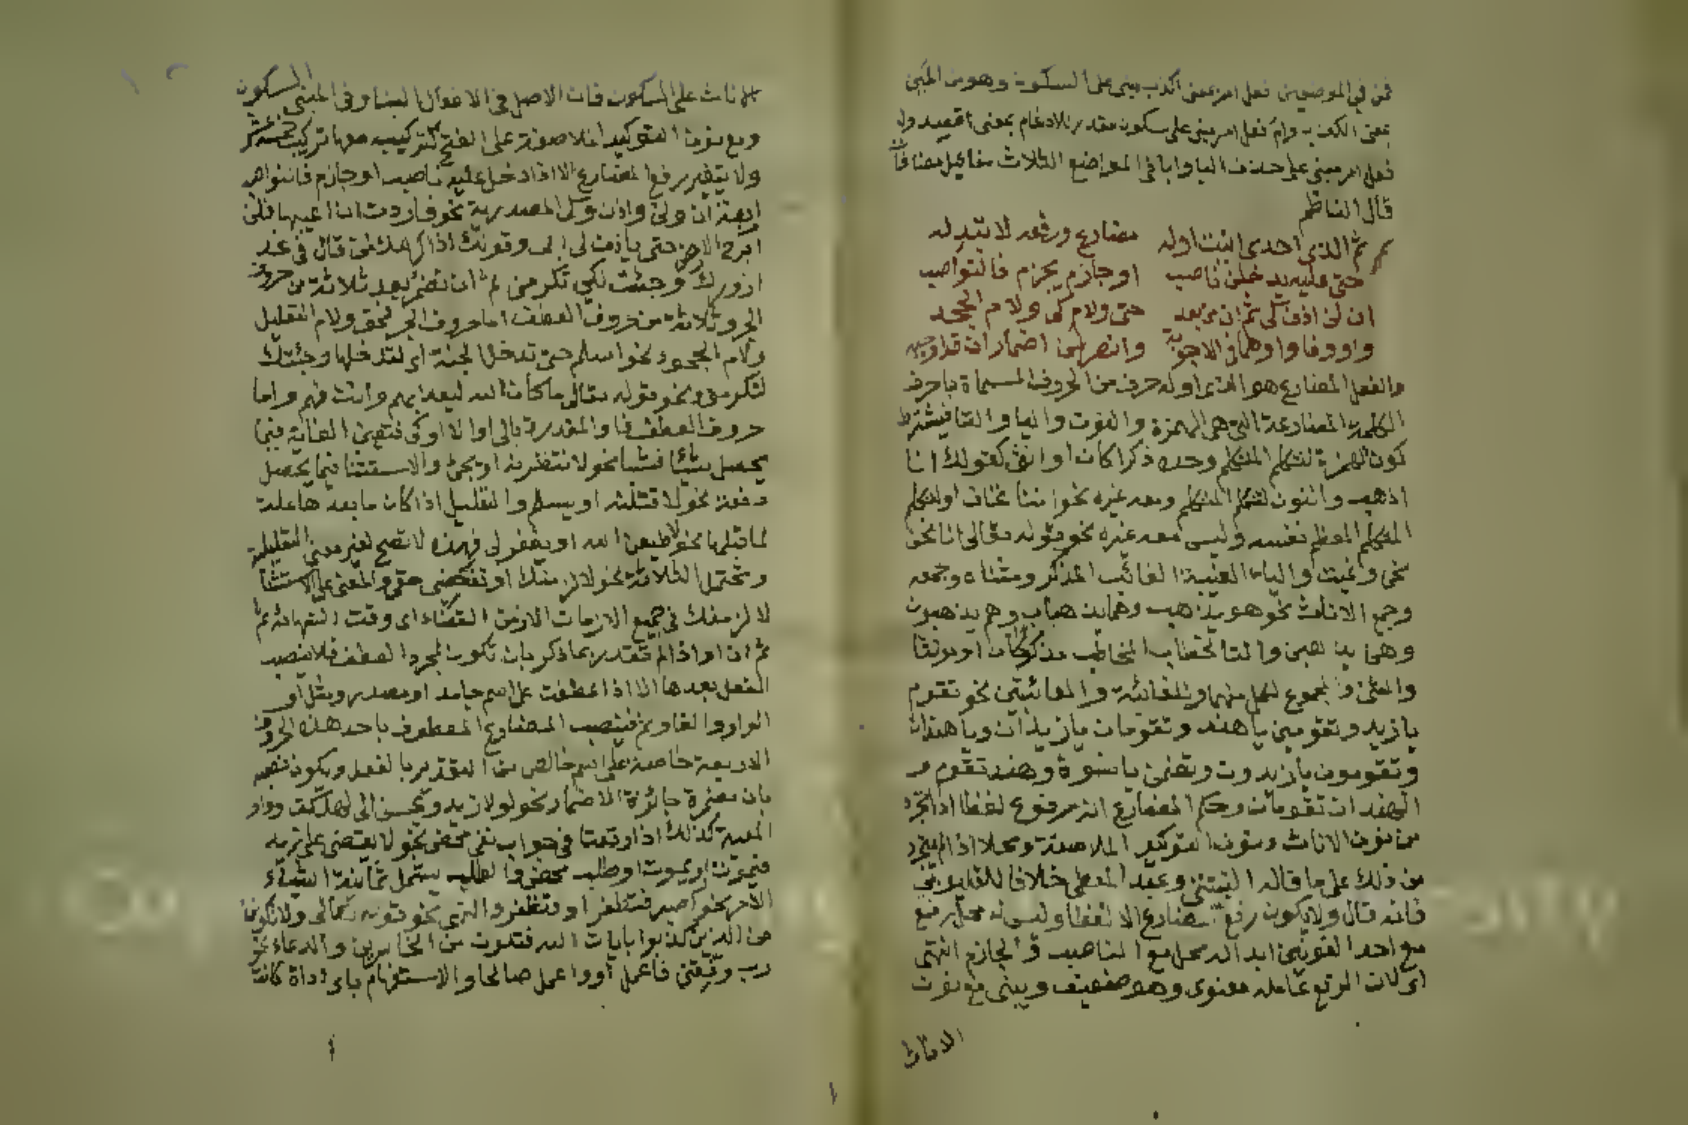 فمن في الموضعين فعل امر بمعنى اكذب مبني على السكون وهو من المين
بمعنى الكذب وام فعل امر مبني على سكون مقدر للادغام بمعنى اقصد ول
فعل امر مبني على حذف اليا وايا في المواضع الثلاث مفاعيل مضافة
قال الناظم
ثم الذي احدى انيت اوله مضارع ورفعه لا تبدله
حتى عليه يدخلن ناصب او جازم يجزم فالنواصب
ان لن اذن كي ثم ان من بعد حتى ولام كي ولام الجحد
واو وفا واو وهما في الاجوبة وانصر اضمار ان
والفعل المضارع هو الذي اوله حرف من الحروف المسماة باحرف
الكلمة المضارعة التي هي الهمزة والنون واليا والتا فيشترط
كون الهمزة لتكلم المتكلم وحده ذكرا كان او انثى كقولك انا
اذهب والنون لتكلم المتكلم ومعه غيره نحو اننا نخاف او لتكلم
المتكلم المعظم نفسه وليس معه غيره نحو قوله تعالى انا نحن
نحي ونميت والياء لغيبة الغائب المذكر ومثناه وجمعه
وجمع الاناث نحو هو يذهب وهما يذهبان وهم يذهبون
وهن يذهبن والتا لخطاب المخاطب مذكرا كان او مونثا
والمثنى والمجموع لكل منهما وللغائبة والغائبتين نحو تقوم
يا زيد وتقومين يا هند وتقومان يا زيدان ويا هندان
وتقومون يا زيدون وتقمن يا نسوة وهند تقوم
الهندان تقومان وحكم المضارع انه مرفوع لفظا اذا تجرد
من نون الاناث ونون التوكيد الملاصقة ومحلا اذا لم يتجرد
من ذلك على ما قاله الشنتني وعبد المعطي خلافا للقليوبي
فانه قال ولا يكون رفع المضارع الا لفظا وليس له محل رفع
مع احدا لنونين ابدا له محل مع الناصب والجازم انتهى
اي لان الرفع عامله معنوي وهو ضعيف ويبنى مع نون
الاناث
الاناث على السكون فان الاصل في الافعال البنا وفي المبني السكون
ومع نون التوكيد الملاصقة على الفتح لتركيبه معها تركيب خمسة عشر
ولا يتغير رفع المضارع الا اذا دخل عليه ناصب او جازم فالنواصب
اربعة ان ولن واذن وكي المصدرية نحو فاردت ان اعيبها فلن
ابرح الارض حتى ياذن لي ابي وقولك اذا اكرمك لمن قال في غد
ازورك وجئت لكي تكرمني ثم ان تضمر بعد ثلاثة من حروف
الجر وثلاثة من حروف العطف اما حروف الجر فحتى ولام التعليل
ولام الجحود نحو اسلم حتى تدخل الجنة اي لتدخلها وجئتك
لتكرمني ونحو قوله تعالى ما كان الله ليعذبهم وانت فيهم واما
حروف العطف فا والمقدرة بالى او الا او كي فتعين الغاية فيما
يحصل شيئا فشيئا نحو لانتظرنه او يجئ والاستثنا فيما يحصل
دفعة نحو لاقتلنه او يسلم والتعليل اذا كان ما بعدها علة
لما قبلها نحو لاطيعن الله او يغفر لي فهذه لا تصح لغير معنى التعليلية
وتحتمل الثلاثة نحو لالزمنك او تقضيني حقي والمعنى على الاستثنا
لا لزمنك في جميع الازمان الا زمن القضاء اي وقت انتهائه ثم
ثم ان او اذا لم تقدر بما ذكر بان تكون لمجرد العطف فلا ينصب
الفعل بعدها الا اذا عطفت على اسم جامد او مصدر ومثل او
الواو والفا وثم فينصب المضارع المعطوف باحد هذه الحروف
الاربعة خاصة على اسم خالص من التقدير بالفعل ويكون نصبه
بان مضمرة جائزة الاضمار نحو لولا زيد ويحسن الي لهلكت وواو
المعية كذلك اذا وقعتا في جواب نفي محض نحو لا يقضى على زيد
فيموت او يموت او طلب محض والطلب يشمل ثمانية اشياء
الامر نحو اصبر فتظفر او وتظفر والنهي نحو قوله تعالى ولا تكونن
من الذين كذبوا بايات الله فتكون من الخاسرين والدعاء نحو
رب وفقني فاعمل او واعمل صالحا والاستفهام باي اداة كانت